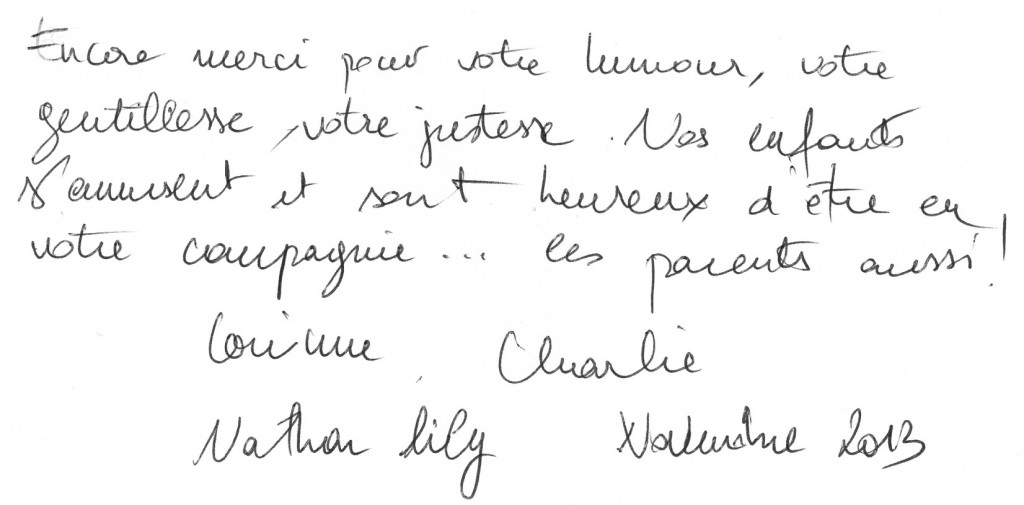 Encore merci pour votre humour, votre
gentillesse, votre justesse. Nos enfants
s'amusent et sont heureux d'être en
votre compagnie... les parents aussi!
Corinne Charlie
Nathan Lily Novembre 2013